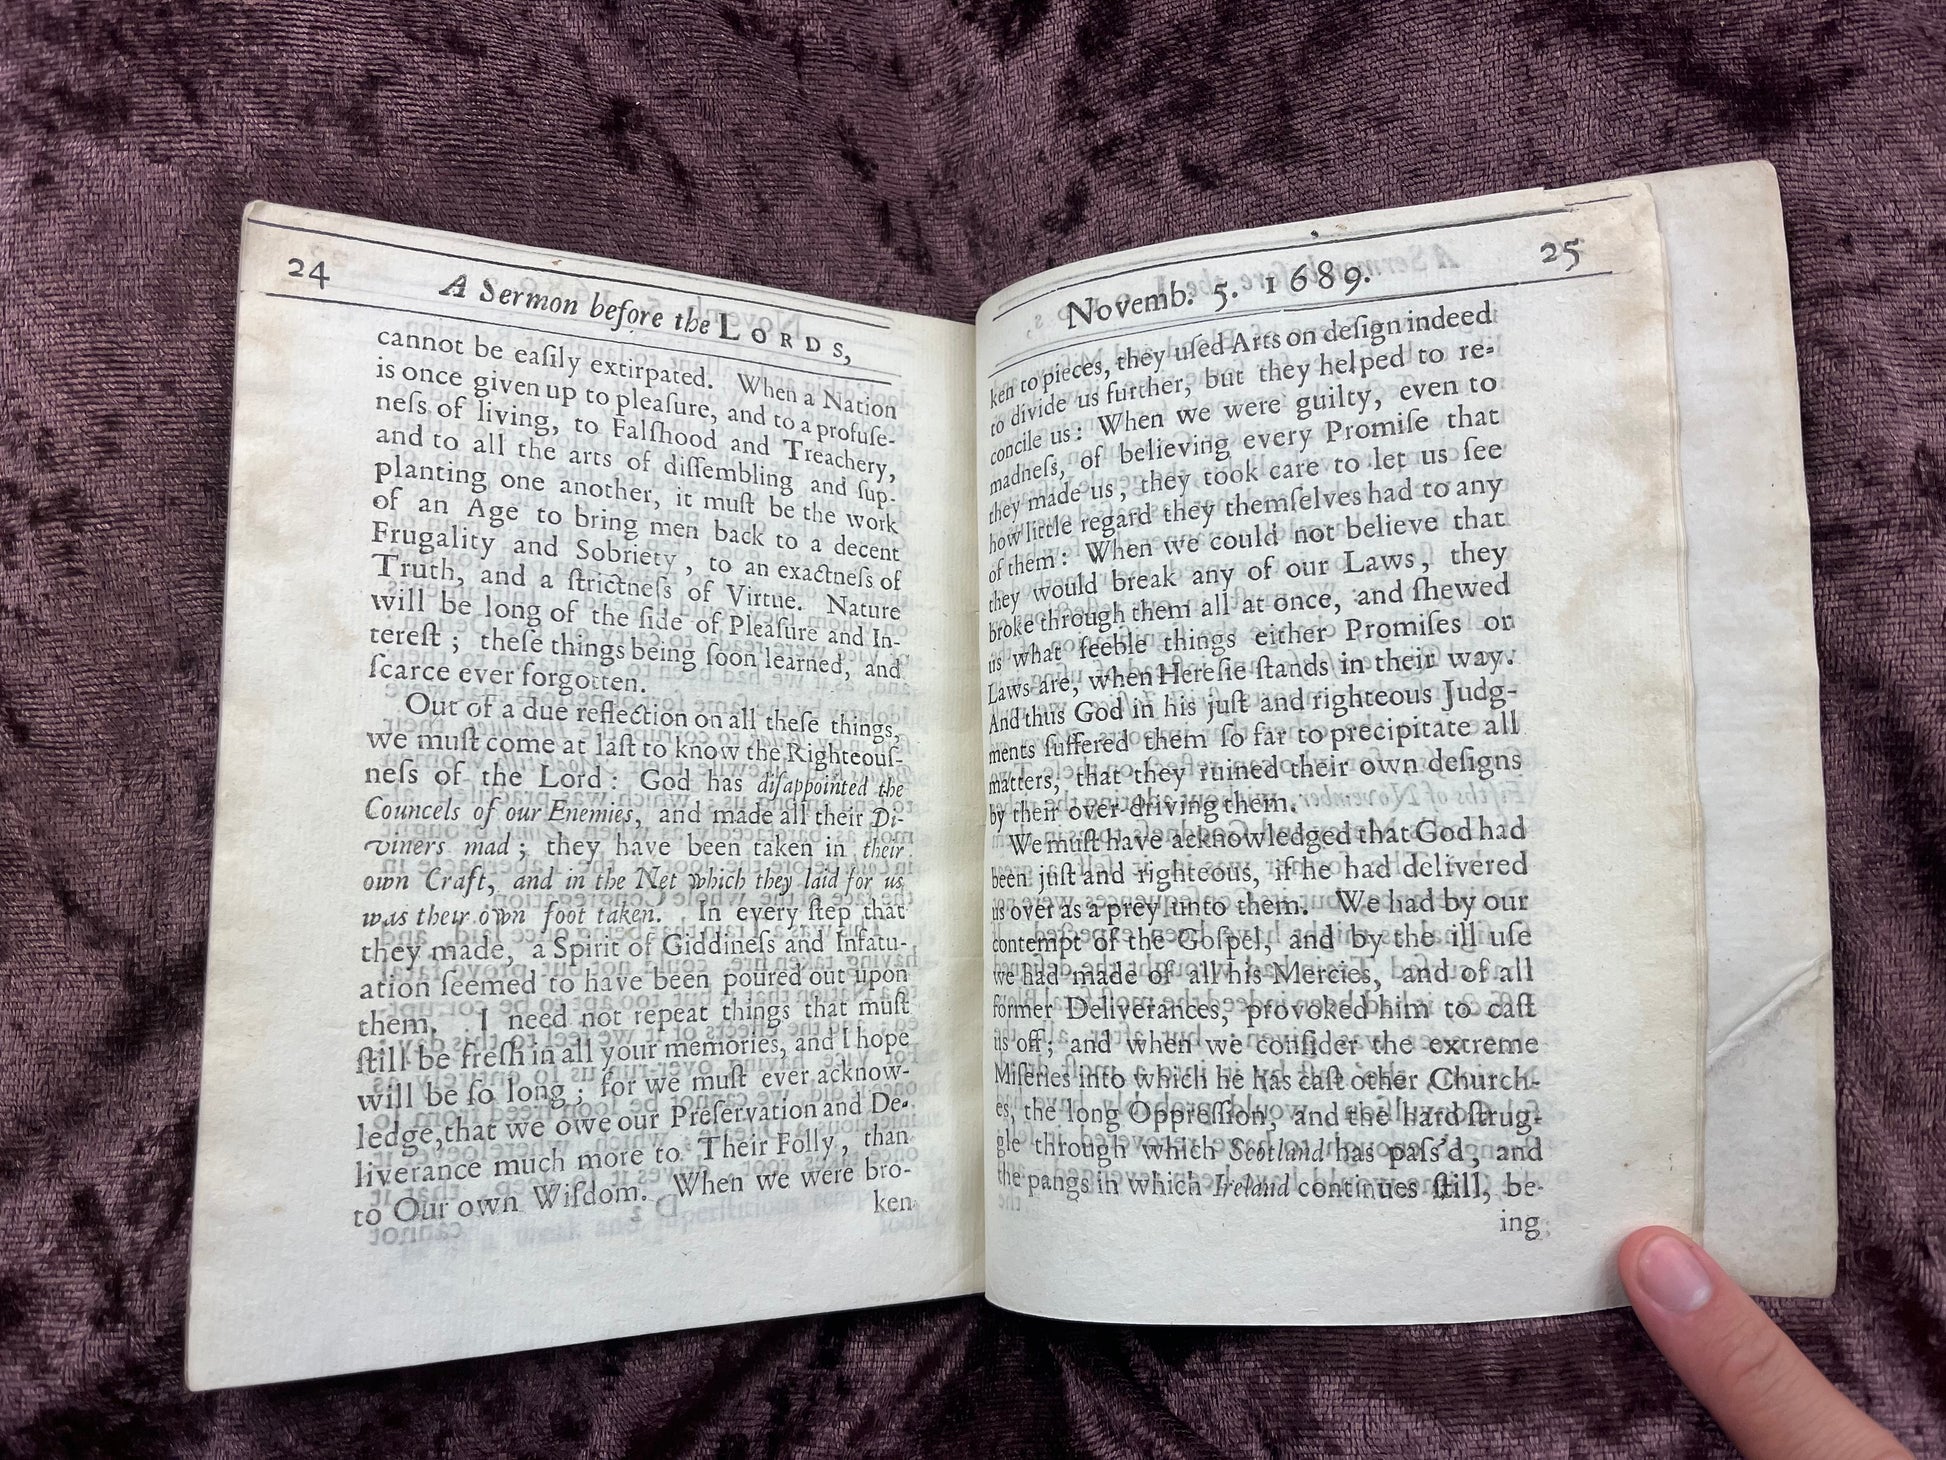 24
A Sermon before the LORDS,
cannot be eaſily extirpated. When a Nation
is once given up to pleaſure, and to a profuſe-
neſs of living, to Falſhood and Treachery,
and to all the arts of diſſembling and ſup-
planting one another, it muſt be the work
of an Age to bring men back to a decent
Frugality and Sobriety, to an exactneſs of
Truth, and a ſtrictneſs of Virtue. Nature
will be long of the ſide of Pleaſure and In-
tereſt; theſe things being ſoon learned, and
ſcarce ever forgotten.
Out of a due reflection on all theſe things,
we muſt come at laſt to know the Righteouſ-
neſs of the Lord: God has diſappointed the
Councels of our Enemies, and made all their Di-
viners mad; they have been taken in their
own Craft, and in the Net which they laid for us
was their own foot taken. In every ſtep that
they made, a Spirit of Giddineſs and Infatu-
ation ſeemed to have been poured out upon
them. I need not repeat things that muſt
ſtill be freſh in all your memories, and I hope
will be ſo long; for we muſt ever acknow-
ledge, that we owe our Preſervation and De-
liverance much more to Their Folly, than
to Our own Wiſdom. When we were bro-
ken
Novemb. 5. 1689.
25
ken to pieces, they uſed Arts on deſign indeed
to divide us further, but they helped to re-
concile us: When we were guilty, even to
madneſs, of believing every Promiſe that
they made us, they took care to let us ſee
how little regard they themſelves had to any
of them: When we could not believe that
they would break any of our Laws, they
broke through them all at once, and ſhewed
us what feeble things either Promiſes or
Laws are, when Hereſie ſtands in their way.
And thus God in his juſt and righteous Judg-
ments ſuffered them ſo far to precipitate all
matters, that they ruined their own deſigns
by their over-driving them.
We muſt have acknowledged that God had
been juſt and righteous, if he had delivered
us over as a prey unto them. We had by our
contempt of the Goſpel, and by the ill uſe
we had made of all his Mercies, and of all
former Deliverances, provoked him to caſt
us off; and when we conſider the extreme
Miſeries into which he has caſt other Church-
es, the long Oppreſſion, and the hard ſtrug-
gle through which Scotland has paſs'd, and
the pangs in which Ireland continues ſtill, be-
ing